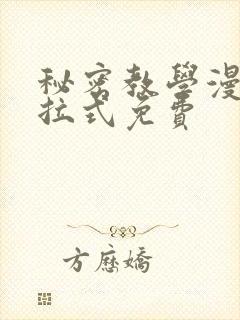 秘密教學漫
拉式免費
方應嬌